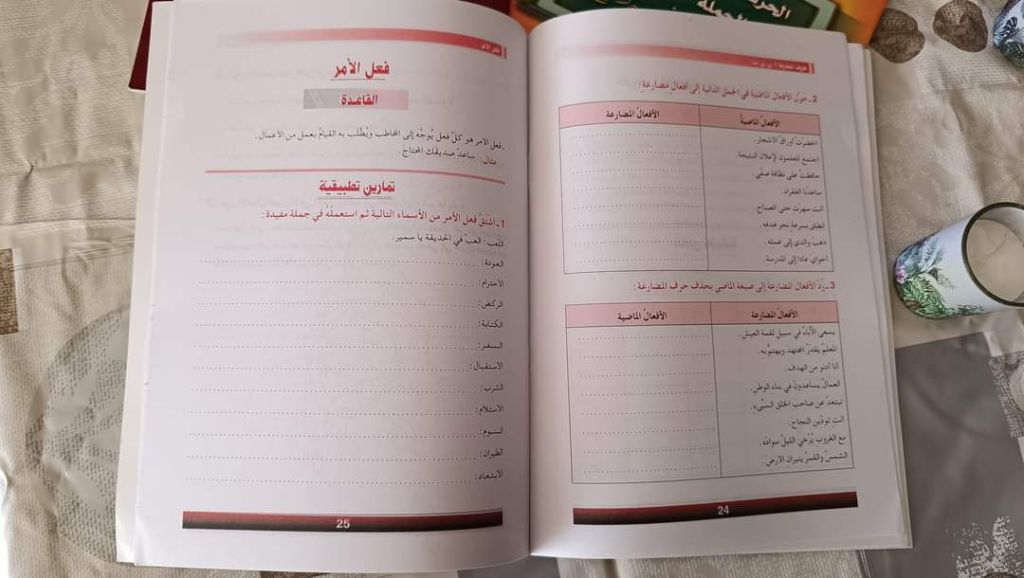 الجملة
حروف المضارعة
2 ـ حوّل الأفعال الماضية في الجمل التالية إلى أفعال مضارعة:
الأفعال الماضية
الأفعال المضارعة
اخضرّت أوراق الأشجار.
اجتمع المعلمون لإعلان النتيجة.
حافظت على نظافة صفّي.
ساعدنا الفقراء.
أنت سهرت حتى الصباح.
انطلق بسرعة نحو هدفه.
ذهب والدي إلى عمله.
أخواي عادا إلى المدرسة.
3 ـ ردّ الأفعال المضارعة إلى صيغة الماضي بحذف حرف المضارعة:
الأفعال المضارعة
الأفعال الماضية
يسعى الآباء في سبيل لقمة العيش.
المعلم يقدّر المجتهد ويهتم به.
أنا أدنو من الهدف.
العمال يساعدون في بناء الوطن.
نبتعد عن صاحب الخلق السيّىء.
أنت تودّين النجاح.
مع الغروب يرخي الليل سواده.
الشمس والقمر ينيران الأرض.
24
فعل الأمر
فعل الأمر
القاعدة
ـ فعل الأمر هو كلّ فعل يُوجَّه إلى المخاطب ويُطلب به القيام بعمل من الأعمال.
مثال: ساعد صديقك المحتاج.
تمارين تطبيقيّة
1 ـ اشتقّ فعل الأمر من الأسماء التالية ثم استعمله في جملة مفيدة:
اللعب: العبْ في الحديقة يا سمير.
العودة:
الاحترام:
الركض:
الكتابة:
السفر:
الاستقبال:
الشرب:
الاستلام:
النوم:
الطيران:
الابتعاد:
25